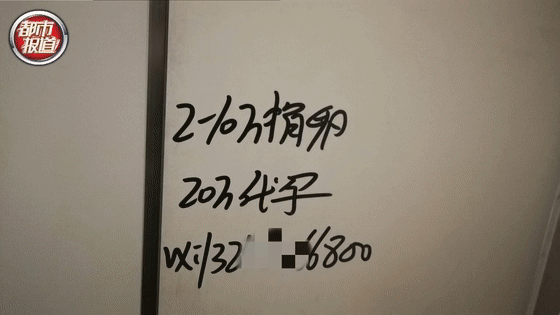 都市
报道
2-10万捐卵
20万代孕
vx:132 6800